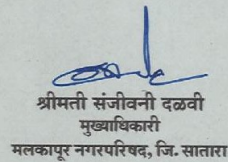 श्रीमती संजीवनी दळवी
मुख्याधिकारी
मलकापूर नगरपरिषद, जि. सातारा